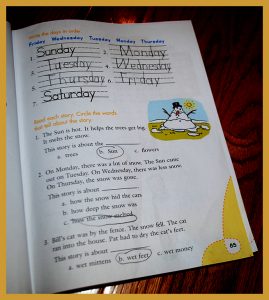 Write the days in order.
Friday Wednesday Tuesday Monday Thursday
1. Sunday 2. Monday
3. Tuesday 4. Wednesday
5. Thursday 6. Friday
7. Saturday
Read each story. Circle the words
that tell about the story.
1. The Sun is hot. It helps the trees get big.
It melts the snow.
This story is about the
a. trees b. Sun c. flowers
2. On Monday, there was a lot of snow. The Sun came
out on Tuesday. On Wednesday, there was less snow.
On Thursday, the snow was gone.
This story is about
a. how the snow hid the cars
b. how deep the snow was
c. how the snow melted
3. Bill's cat was by the fence. The snow fell. The cat
ran into the house. Pat had to dry the cat's feet.
This story is about
a. wet mittens b. wet feet c. wet money
65